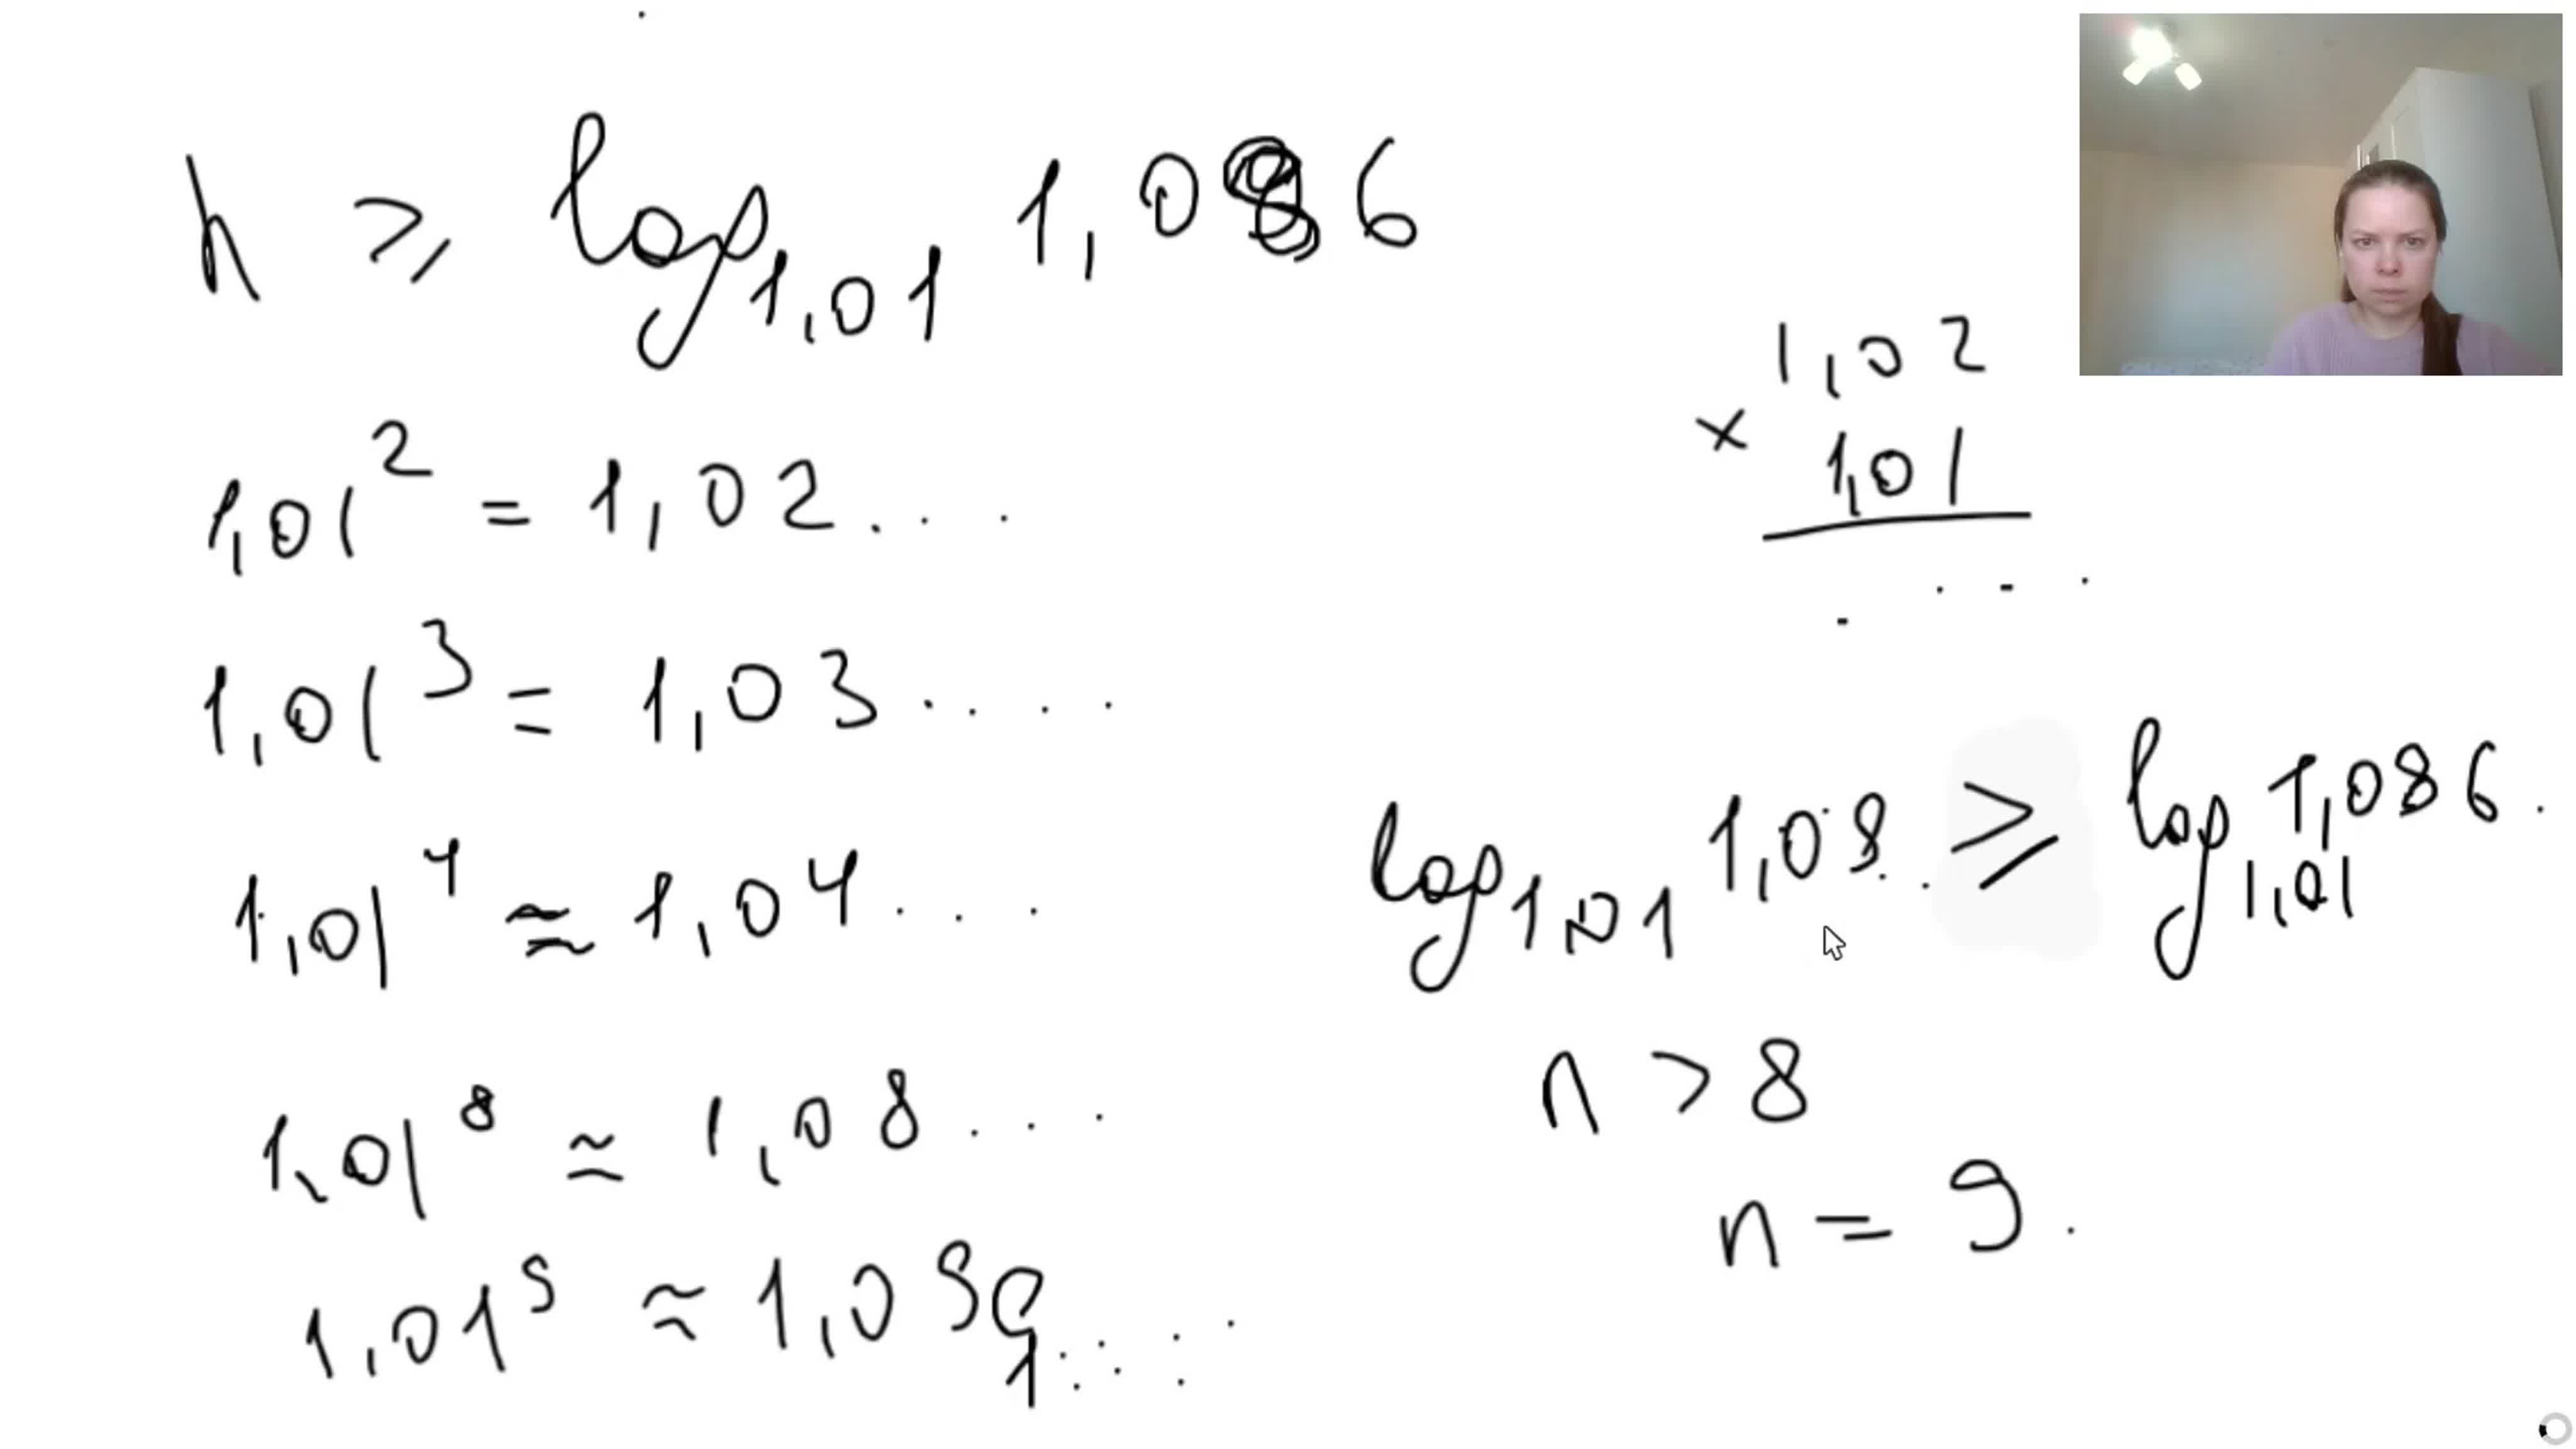 n ⩾ log₁,₀₁ 1,086
1,01² = 1,02...
1,01³ = 1,03....
1,01⁴ ≈ 1,04...
1,01⁸ ≈ 1,08...
1,01⁹ ≈ 1,09
1,02
× 1,01
log₁,₀₁ 1,08.. ⩾ log₁,₀₁ 1,086.
n > 8
n = 9.